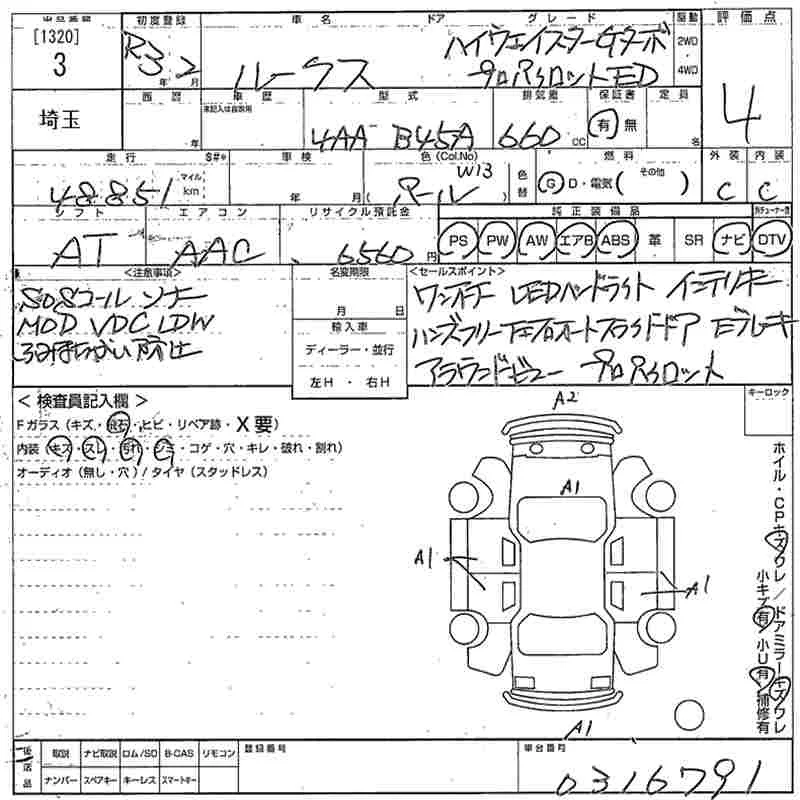 [1320]
3
埼玉
初度登録
R3 2
年 月
車名 ドア グレード
ルークス
ハイウェイスターGターボ
プロパイロットED
駆動
2WD
・
4WD
評価点
4
西暦
年
車歴
未記入は自家用
型式
4AA B45A
排気量
660 cc
保証書
有 無
定員
名
走行
48851
マイル
km
S#*
車検
年 月
色 (Col.No)
パール W13
色替
燃料
G D・電気 ( その他 )
外装
C
内装
C
シフト
AT
エアコン
AAC
リサイクル預託金
6560 円
純正装備品
PS PW AW エアB ABS 革 SR ナビ DTV
<注意事項>
SOSコール ソナー
MOD VDC LDW
ふみまちがい防止
名変期限
月 日
輸入車
ディーラー・並行
左H ・ 右H
<セールスポイント>
ワンオーナー LEDヘッドライト インテリキー
ハンズフリー左右オートスライドドア Eブレーキ
アラウンドビュー プロパイロット
< 検査員記入欄 >
Fガラス (キズ・飛石・ヒビ・リペア跡・X要)
内装 (キズ・スレ・汚れ・シミ・コゲ・穴・キレ・破れ・割れ)
オーディオ (無し・穴) / タイヤ (スタッドレス)
キーロック
A2
A1
A1
A1
A1
ホイル・CPキズワレ / ドアミラーキズワレ
小キズ有 小U有 補修有
後送品
取説 ナビ取説 ロム/SD B-CAS リモコン
ナンバー スペアキー キーレス スマートキー
登録番号
車台番号
0316791